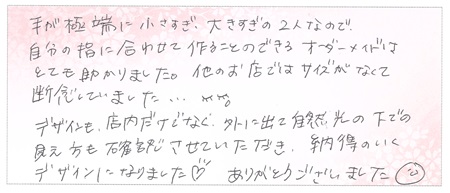 手が極端に小さすぎ、大きすぎの2人なので、
自分の指に合わせて作ることのできるオーダーメイドは
とても助かりました。他のお店ではサイズがなくて
断念していました…
デザインも、店内だけでなく、外に出て自然光の下での
見え方も確認させていただき、納得のいく
デザインになりました♡ ありがとうございました